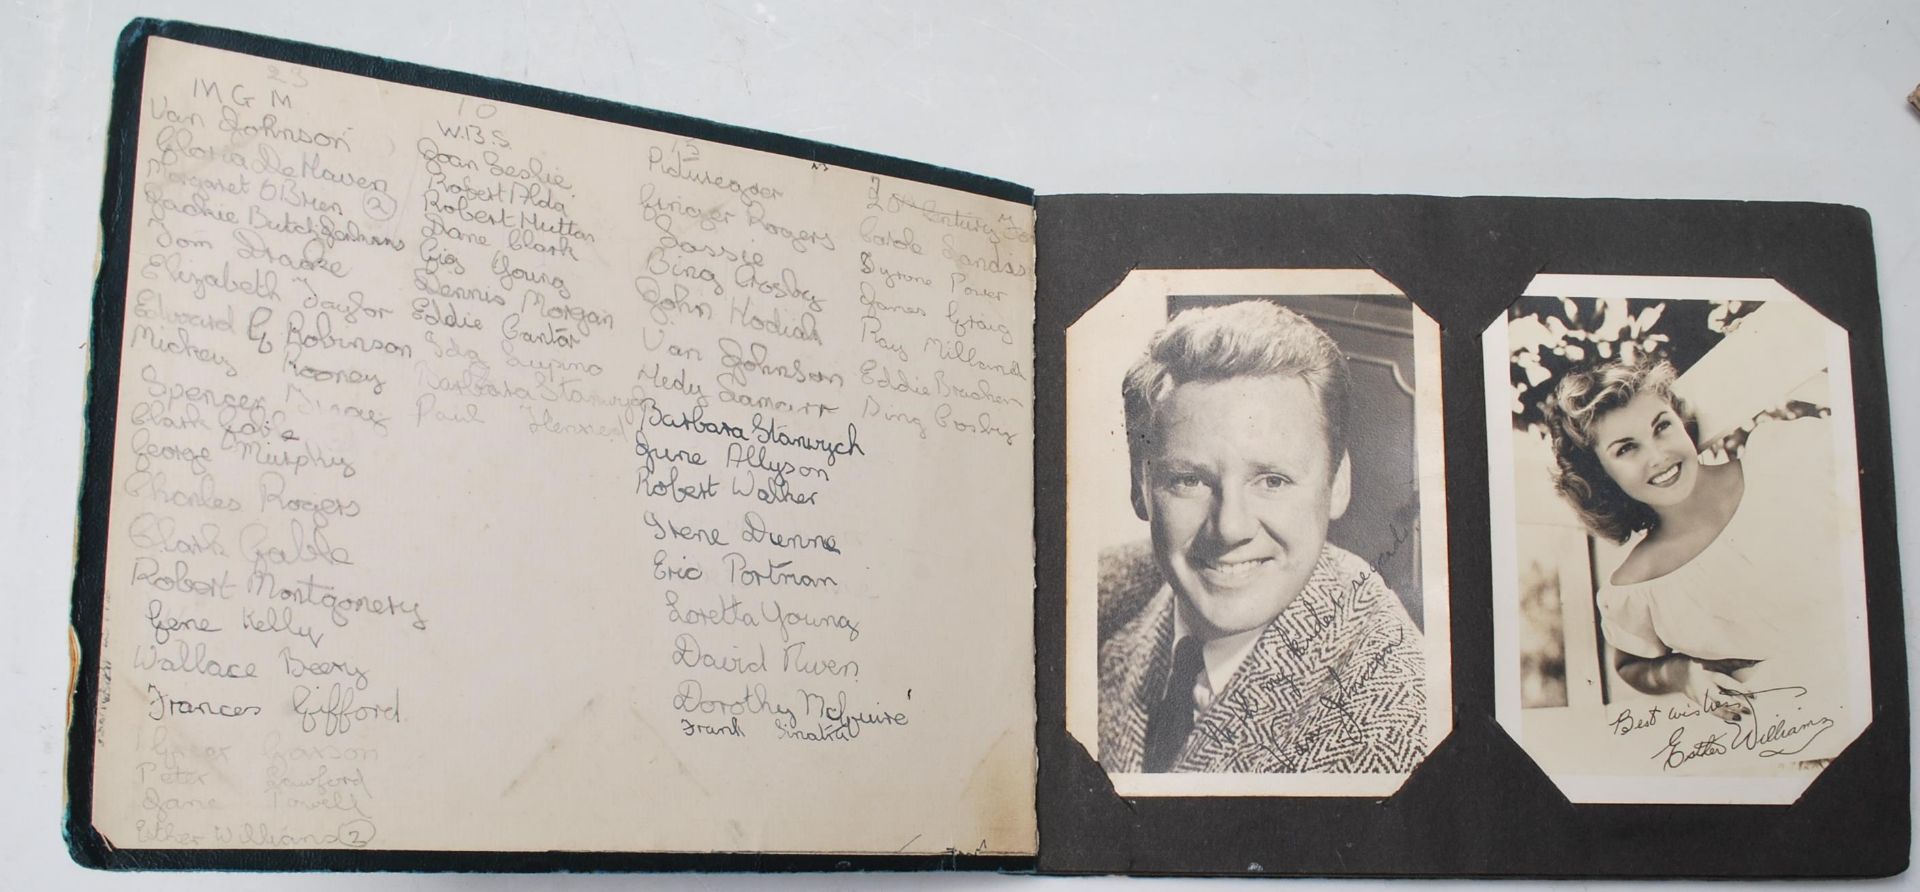 23
M G M
Van Johnson
Gloria DeHaven
Margaret O'Brien (2)
Jackie Butch Jenkins
Tom Drake
Elizabeth Taylor
Edward G Robinson
Mickey Rooney
Spencer Tracey
Clark Gable
George Murphy
Charles Rogers
Clark Gable
Robert Montgomery
Gene Kelly
Wallace Beery
Frances Gifford
Greer Garson
Peter Lawford
Jane Powell
Esther Williams (2)
10
W.B.S.
Joan Leslie
Robert Alda
Robert Hutton
Dane Clark
Gig Young
Dennis Morgan
Eddie Cantor
Ida Lupino
Barbara Stanwyck
Paul Henried
15
Picturegoer
Ginger Rogers
Lassie
Bing Crosby
John Hodiak
Van Johnson
Hedy Lamarr
Barbara Stanwych
June Allyson
Robert Walker
Irene Dunne
Eric Portman
Loretta Young
David Niven
Dorothy McGuire
Frank Sinatra
7
20th Century Fox
Carole Landis
Tyrone Power
James Craig
Ray Milland
Eddie Bracken
Bing Crosby
With my kindest regards
Van Johnson
Best wishes
Esther Williams